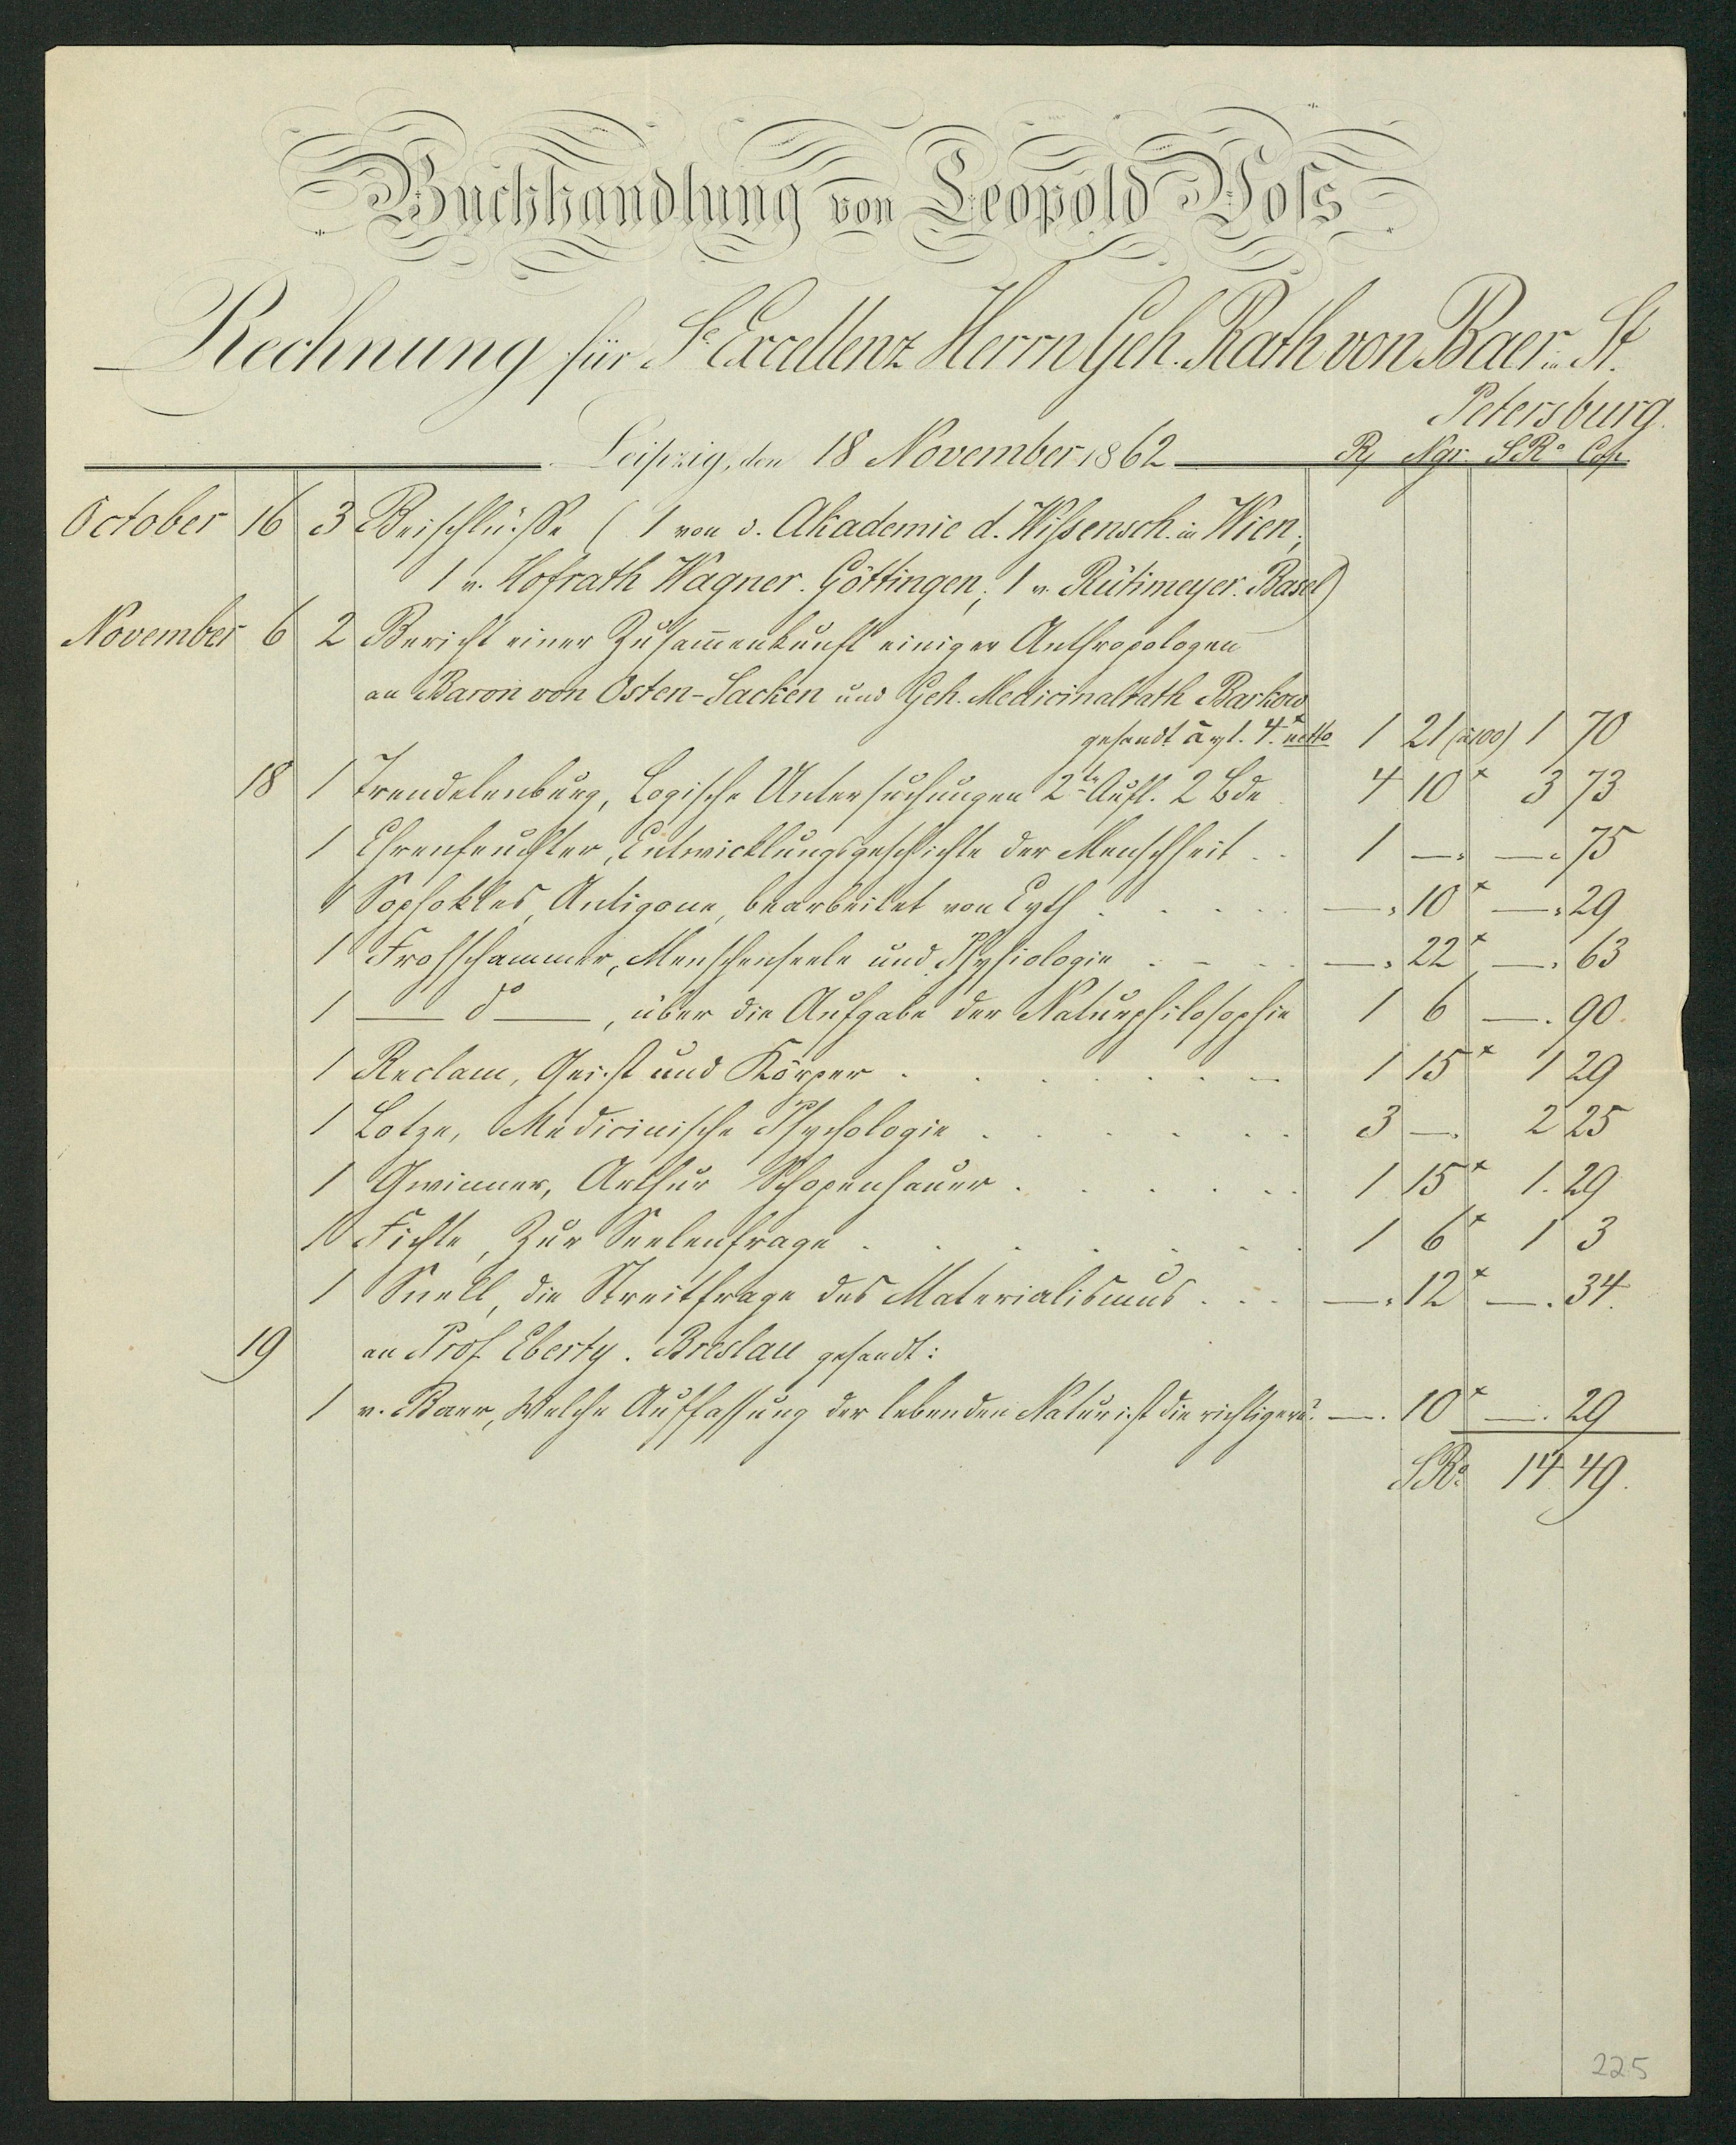 Buchhandlung von Leopold Voſs
Rechnung für Se Excellenz Herrn Geh. Rath von Baer in St.
Petersburg.
Leipzig, den 18 November 1862 Rf Ngr. SRo Cop.
October 16 3 Beischlüsse (1 von d. Akademie d. Wissensch. in Wien,
1 v. Hofrath Wagner. Göttingen, 1 v. Rütimeyer. Basel)
November 6 2 Bericht einer Zusam̅enkunft einiger Anthropologen
an Baron von Osten-Sacken und Geh. Medicinalrath Barkow
gesandt à 4. netto 1 21 (à 100) 1 70
18 1 Trendelenburg, Logische Untersuchungen 2te Aufl. 2 Bde 4 10 x 3 73
1 Ehrenfeuchter, Entwicklungsgeschichte der Menschheit . . 1 —. —. 75
1 Sophokles, Antigone, bearbeitet von Eyth . . . . . —. 10 x —. 29
1 Frohschammer, Menschenseele und Physiologie . . . . —. 22 x —. 63
1 — do —, über die Aufgabe der Naturphilosophie 1 6 —. 90.
1 Reclam, Geist und Körper . . . . . . . 1 15 x 1 29
1 Lotze, Medicinische Psychologie . . . . . . 3 —. 2 25
1 Gwinner, Arthur Schopenhauer . . . . . . 1 15 x 1. 29
1 Fichte, Zur Seelenfrage . . . . . . . 1 6 x 1 3
1 Snell, die Streitfrage des Materialismus . . . —. 12 x —. 34.
19 an Prof. Eberty. Breslau gesandt:
1 v. Baer, Welche Auffassung der lebenden Natur ist die richtige? —. 10 x —. 29
SRo 14 49.
225